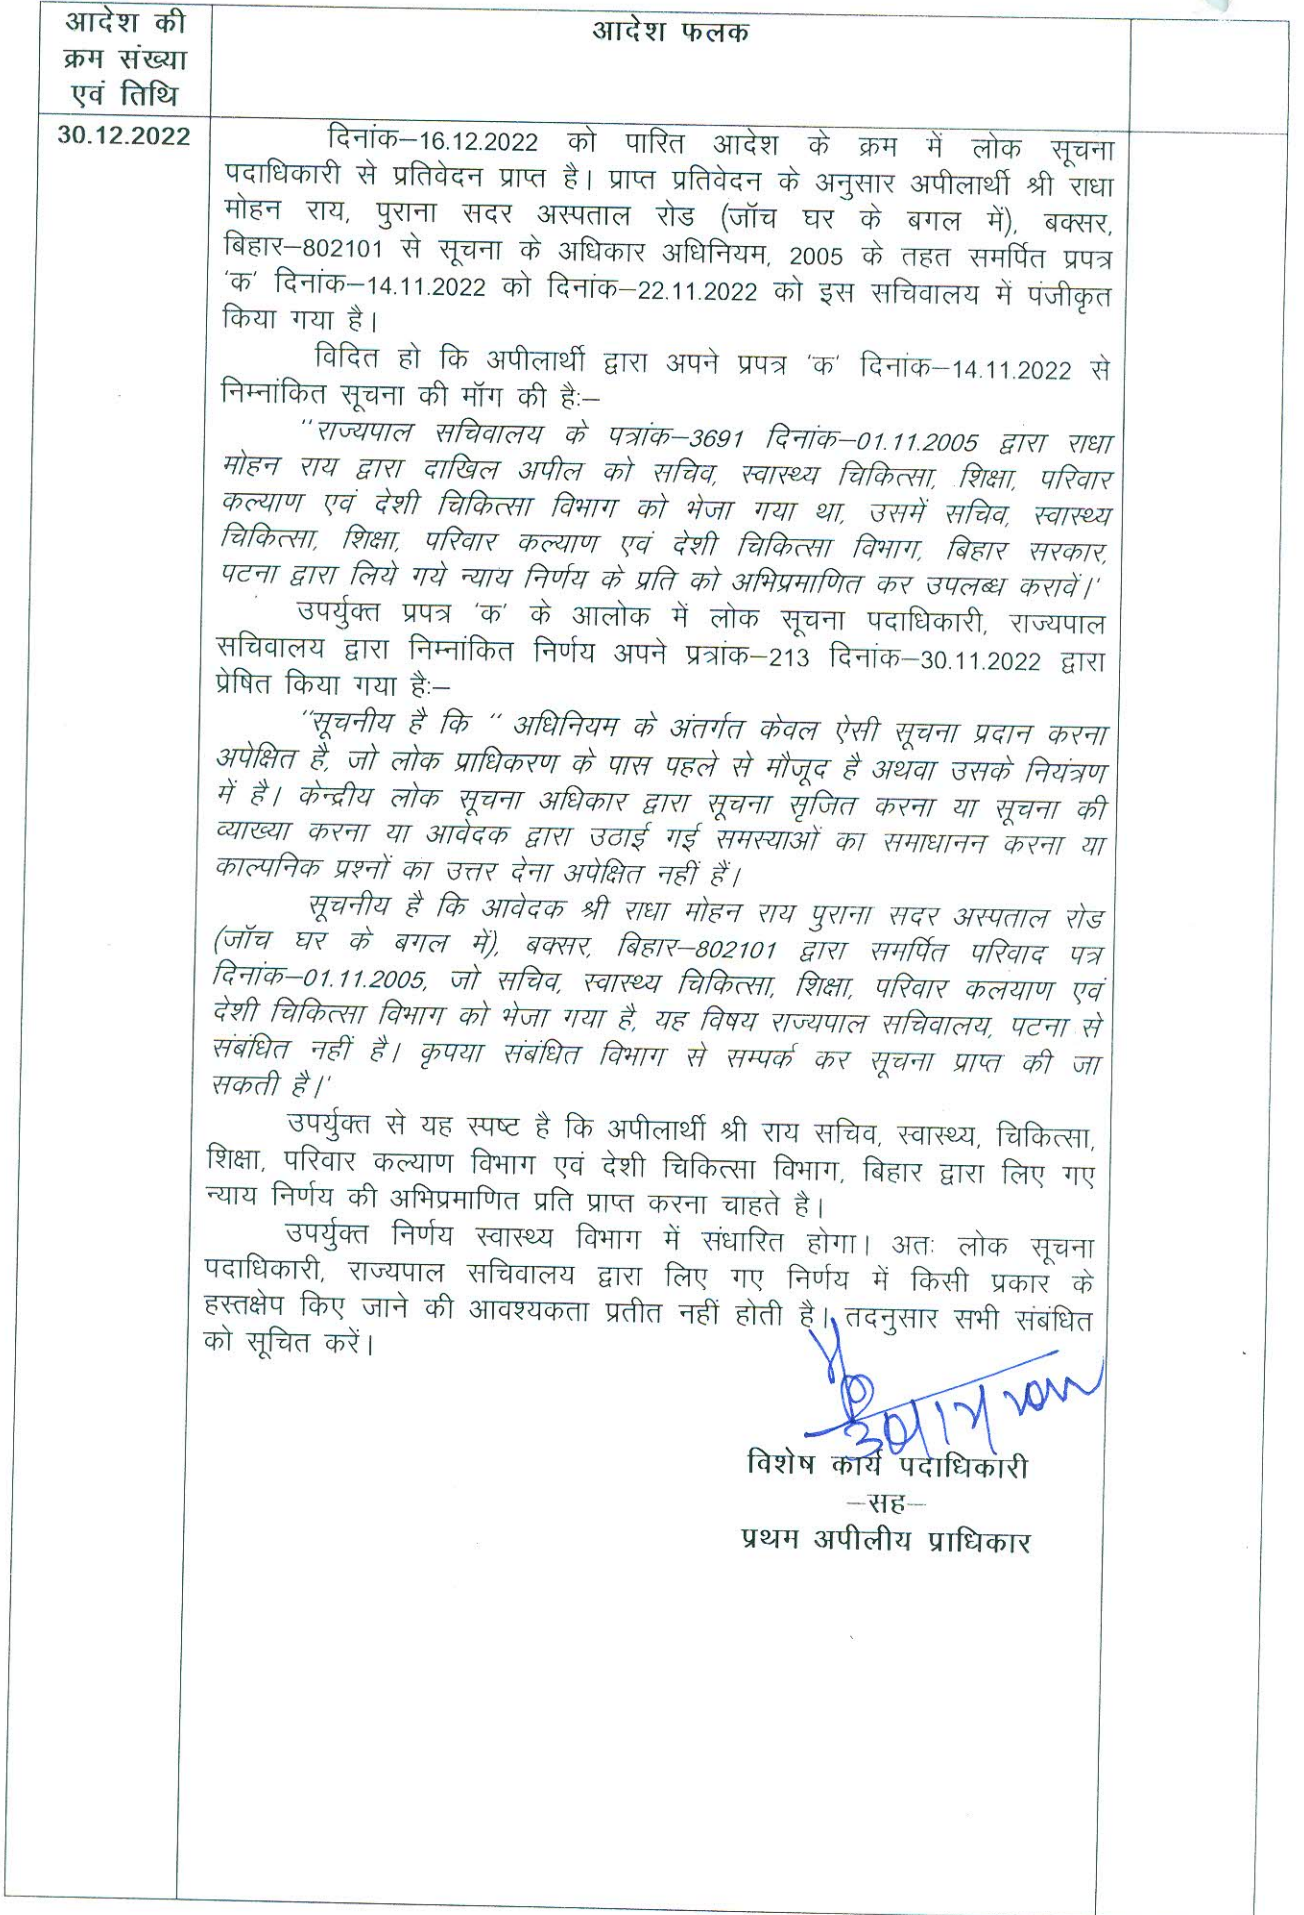 आदेश की
क्रम संख्या
एवं तिथि
आदेश फलक
30.12.2022
दिनांक–16.12.2022 को पारित आदेश के क्रम में लोक सूचना
पदाधिकारी से प्रतिवेदन प्राप्त है। प्राप्त प्रतिवेदन के अनुसार अपीलार्थी श्री राधा
मोहन राय, पुराना सदर अस्पताल रोड (जॉच घर के बगल में), बक्सर,
बिहार–802101 से सूचना के अधिकार अधिनियम, 2005 के तहत समर्पित प्रपत्र
'क' दिनांक–14.11.2022 को दिनांक–22.11.2022 को इस सचिवालय में पंजीकृत
किया गया है।
विदित हो कि अपीलार्थी द्वारा अपने प्रपत्र 'क' दिनांक–14.11.2022 से
निम्नांकित सूचना की मॉग की है:–
''राज्यपाल सचिवालय के पत्रांक–3691 दिनांक–01.11.2005 द्वारा राधा
मोहन राय द्वारा दाखिल अपील को सचिव, स्वास्थ्य चिकित्सा, शिक्षा, परिवार
कल्याण एवं देशी चिकित्सा विभाग को भेजा गया था, उसमें सचिव, स्वास्थ्य
चिकित्सा, शिक्षा, परिवार कल्याण एवं देशी चिकित्सा विभाग, बिहार सरकार,
पटना द्वारा लिये गये न्याय निर्णय के प्रति को अभिप्रमाणित कर उपलब्ध करावें।'
उपर्युक्त प्रपत्र 'क' के आलोक में लोक सूचना पदाधिकारी, राज्यपाल
सचिवालय द्वारा निम्नांकित निर्णय अपने प्रत्रांक–213 दिनांक–30.11.2022 द्वारा
प्रेषित किया गया है:–
''सूचनीय है कि '' अधिनियम के अंतर्गत केवल ऐसी सूचना प्रदान करना
अपेक्षित है, जो लोक प्राधिकरण के पास पहले से मौजूद है अथवा उसके नियंत्रण
में है। केन्द्रीय लोक सूचना अधिकार द्वारा सूचना सृजित करना या सूचना की
व्याख्या करना या आवेदक द्वारा उठाई गई समस्याओं का समाधानन करना या
काल्पनिक प्रश्नों का उत्तर देना अपेक्षित नहीं हैं।
सूचनीय है कि आवेदक श्री राधा मोहन राय पुराना सदर अस्पताल रोड
(जॉच घर के बगल में), बक्सर, बिहार–802101 द्वारा समर्पित परिवाद पत्र
दिनांक–01.11.2005, जो सचिव, स्वास्थ्य चिकित्सा, शिक्षा, परिवार कलयाण एवं
देशी चिकित्सा विभाग को भेजा गया है, यह विषय राज्यपाल सचिवालय, पटना से
संबंधित नहीं है। कृपया संबंधित विभाग से सम्पर्क कर सूचना प्राप्त की जा
सकती है।'
उपर्युक्त से यह स्पष्ट है कि अपीलार्थी श्री राय सचिव, स्वास्थ्य, चिकित्सा,
शिक्षा, परिवार कल्याण विभाग एवं देशी चिकित्सा विभाग, बिहार द्वारा लिए गए
न्याय निर्णय की अभिप्रमाणित प्रति प्राप्त करना चाहते है।
उपर्युक्त निर्णय स्वास्थ्य विभाग में संधारित होगा। अतः लोक सूचना
पदाधिकारी, राज्यपाल सचिवालय द्वारा लिए गए निर्णय में किसी प्रकार के
हस्तक्षेप किए जाने की आवश्यकता प्रतीत नहीं होती है। तदनुसार सभी संबंधित
को सूचित करें।
विशेष कार्य पदाधिकारी
–सह–
प्रथम अपीलीय प्राधिकार